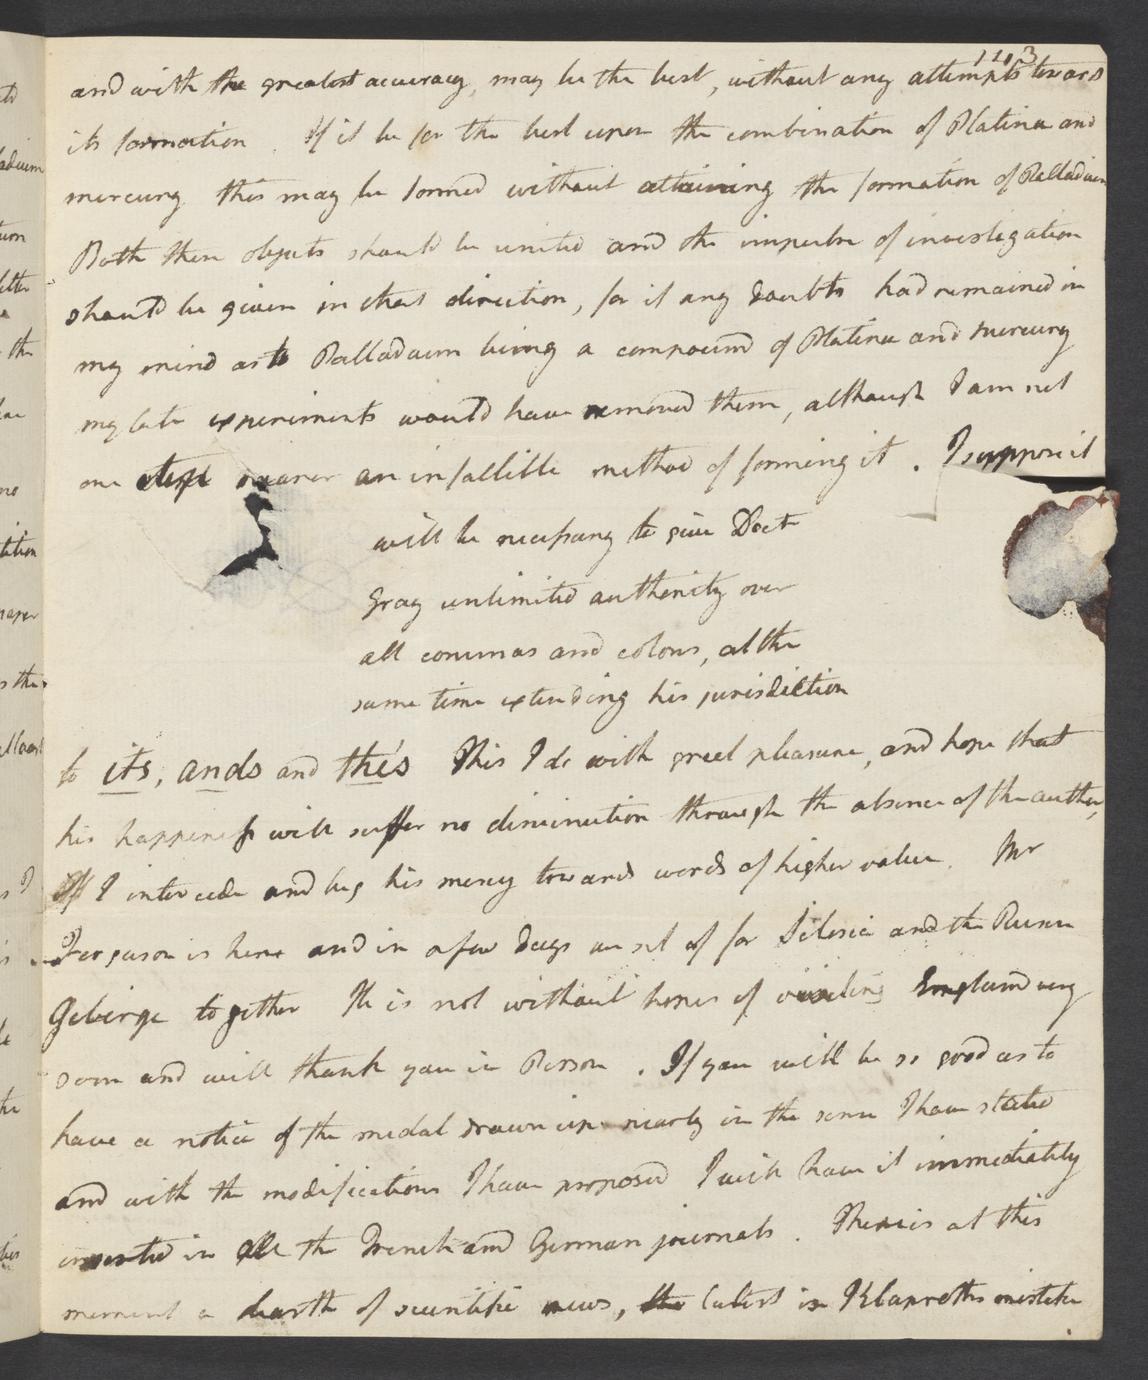 113
and with the greatest accuracy, may be the best, without any attempts towards
its formation. If it be for the best upon the combination of Platina and
mercury this may be formed without attaining the formation of Palladium
Both these objects should be united and the impulse of investigation
should be given in that direction, for if any doubts had remained in
my mind as to Palladium being a compound of Platina and mercury
my late experiments would have removed them, although I am not
one step nearer an infallible method of forming it. I suppose it
will be necessary to give Doct
Gray unlimited authority over
all commas and colons, at the
same time extending his jurisdiction
to its, ands and the's This I do with great pleasure, and hope that
his happiness will suffer no diminution through the absence of the author,
If I intercede and beg his mercy towards words of higher value. Mr
Ferguson is here and in a few days we set of for Silesia and the Riesen
Gebirge together He is not without hopes of visiting England very
soon and will thank you in Person. If you will be so good as to
have a notice of the medal drawn up nearly in the sense I have stated
and with the modifications I have proposed I will have it immediately
inserted in all the French and German journals. There is at this
moment a dearth of scientific news, the latest is Klaproths mistake